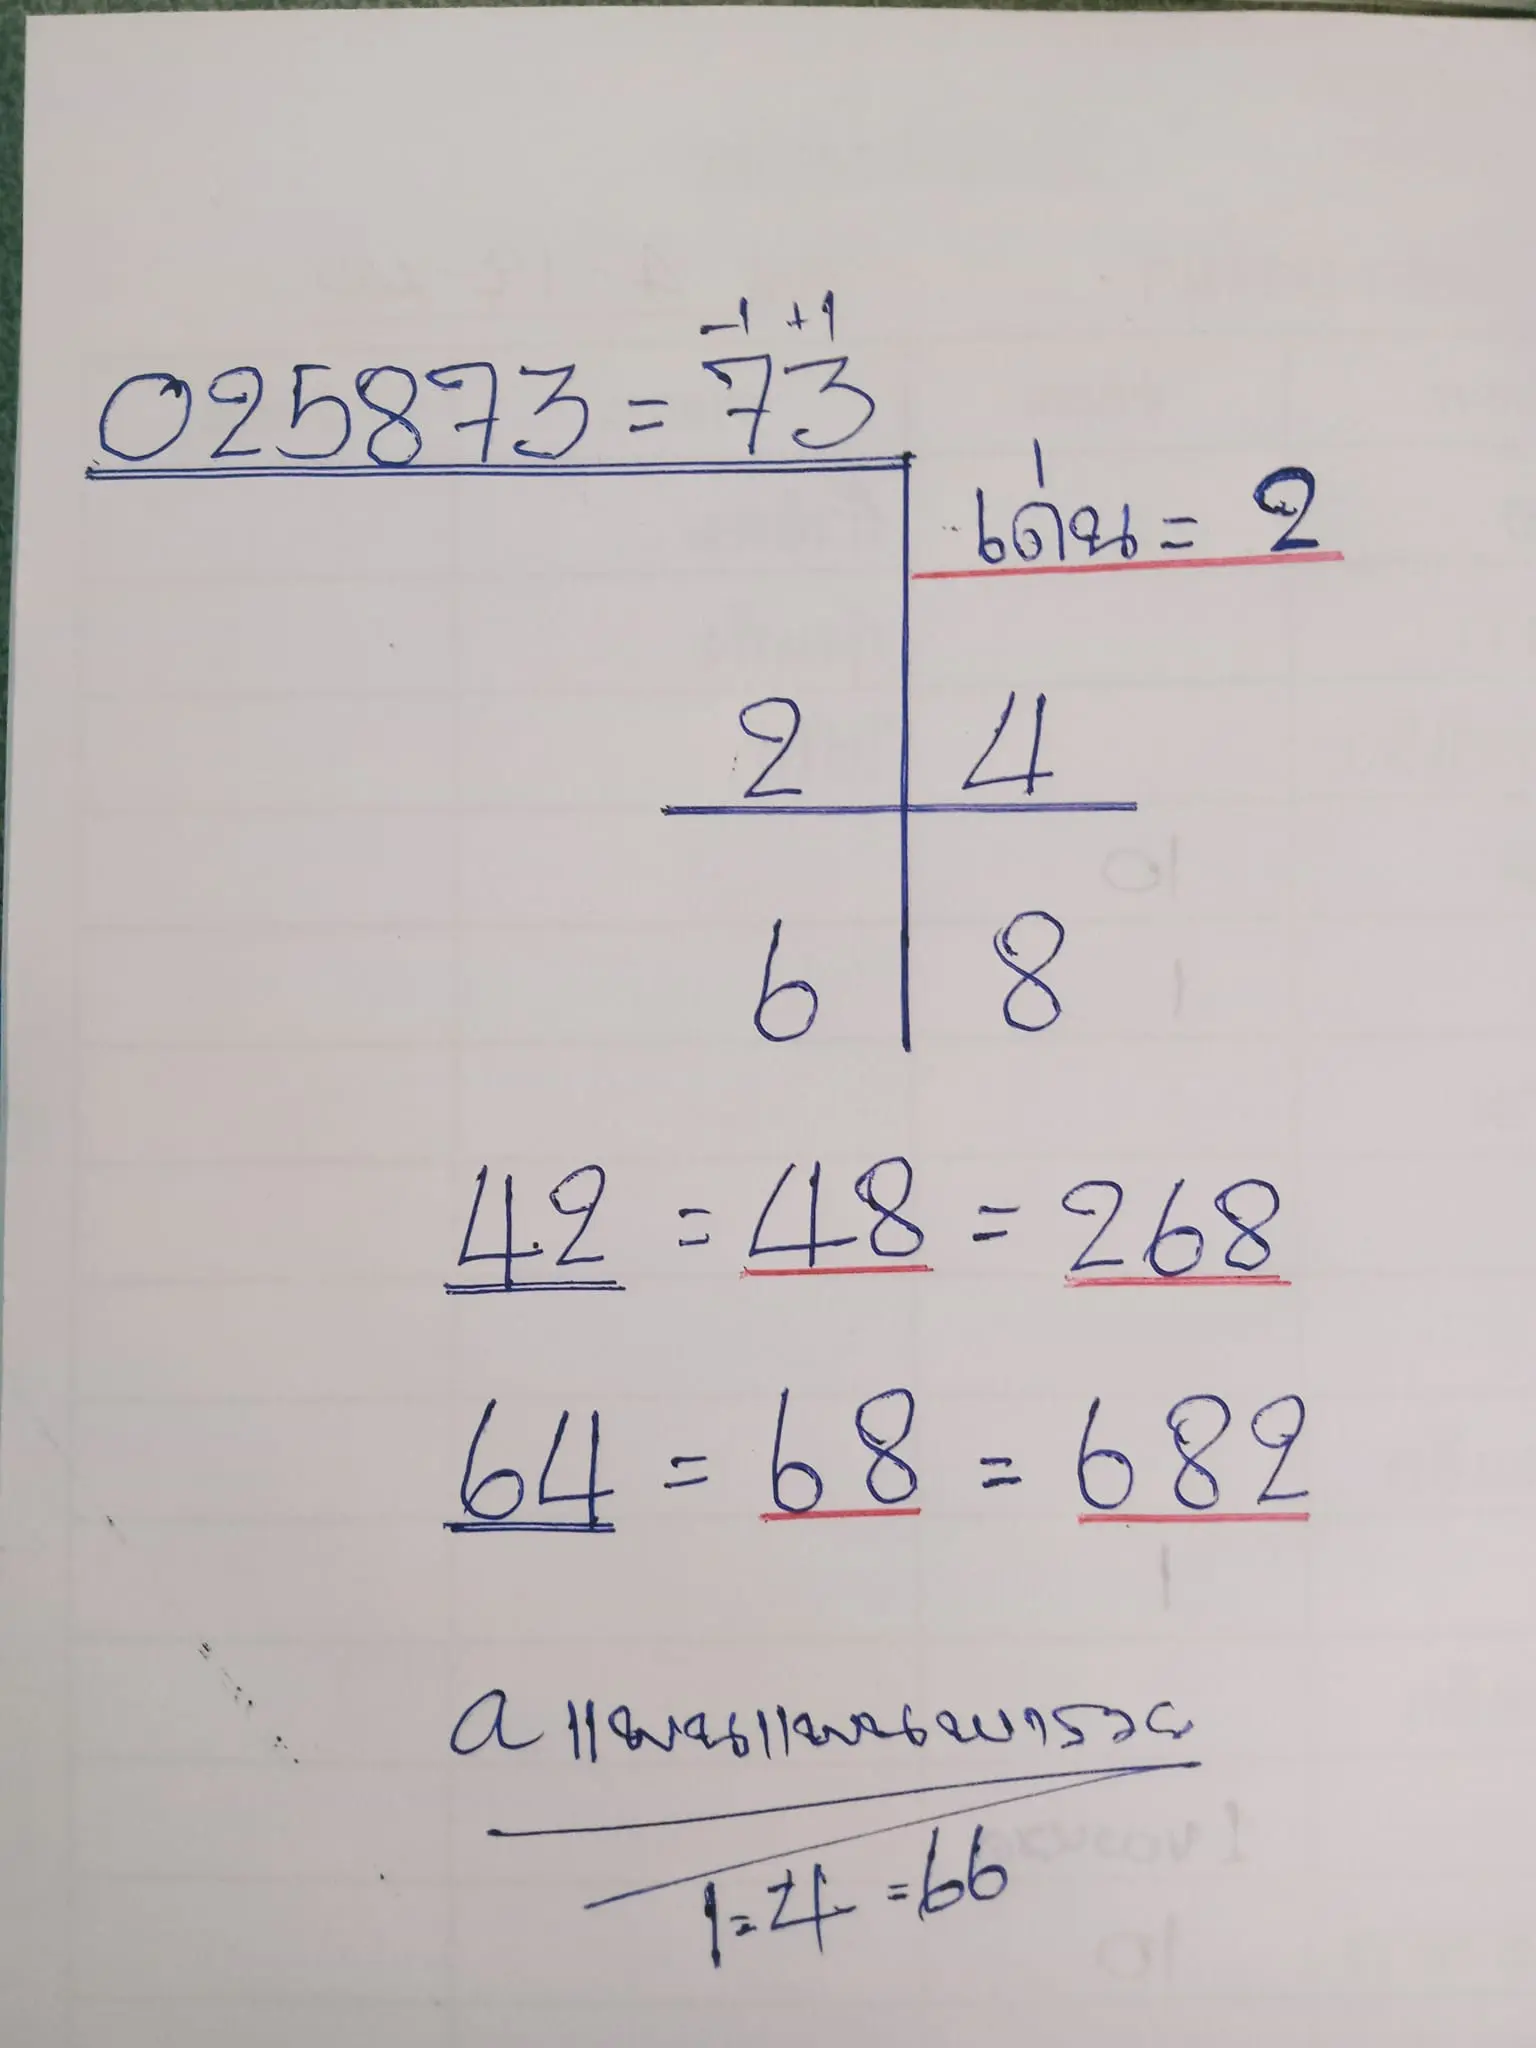 -1 +1
025873 = 73
เด่น = 2
2 4
6 8
42 = 48 = 268
64 = 68 = 682
1=4=66